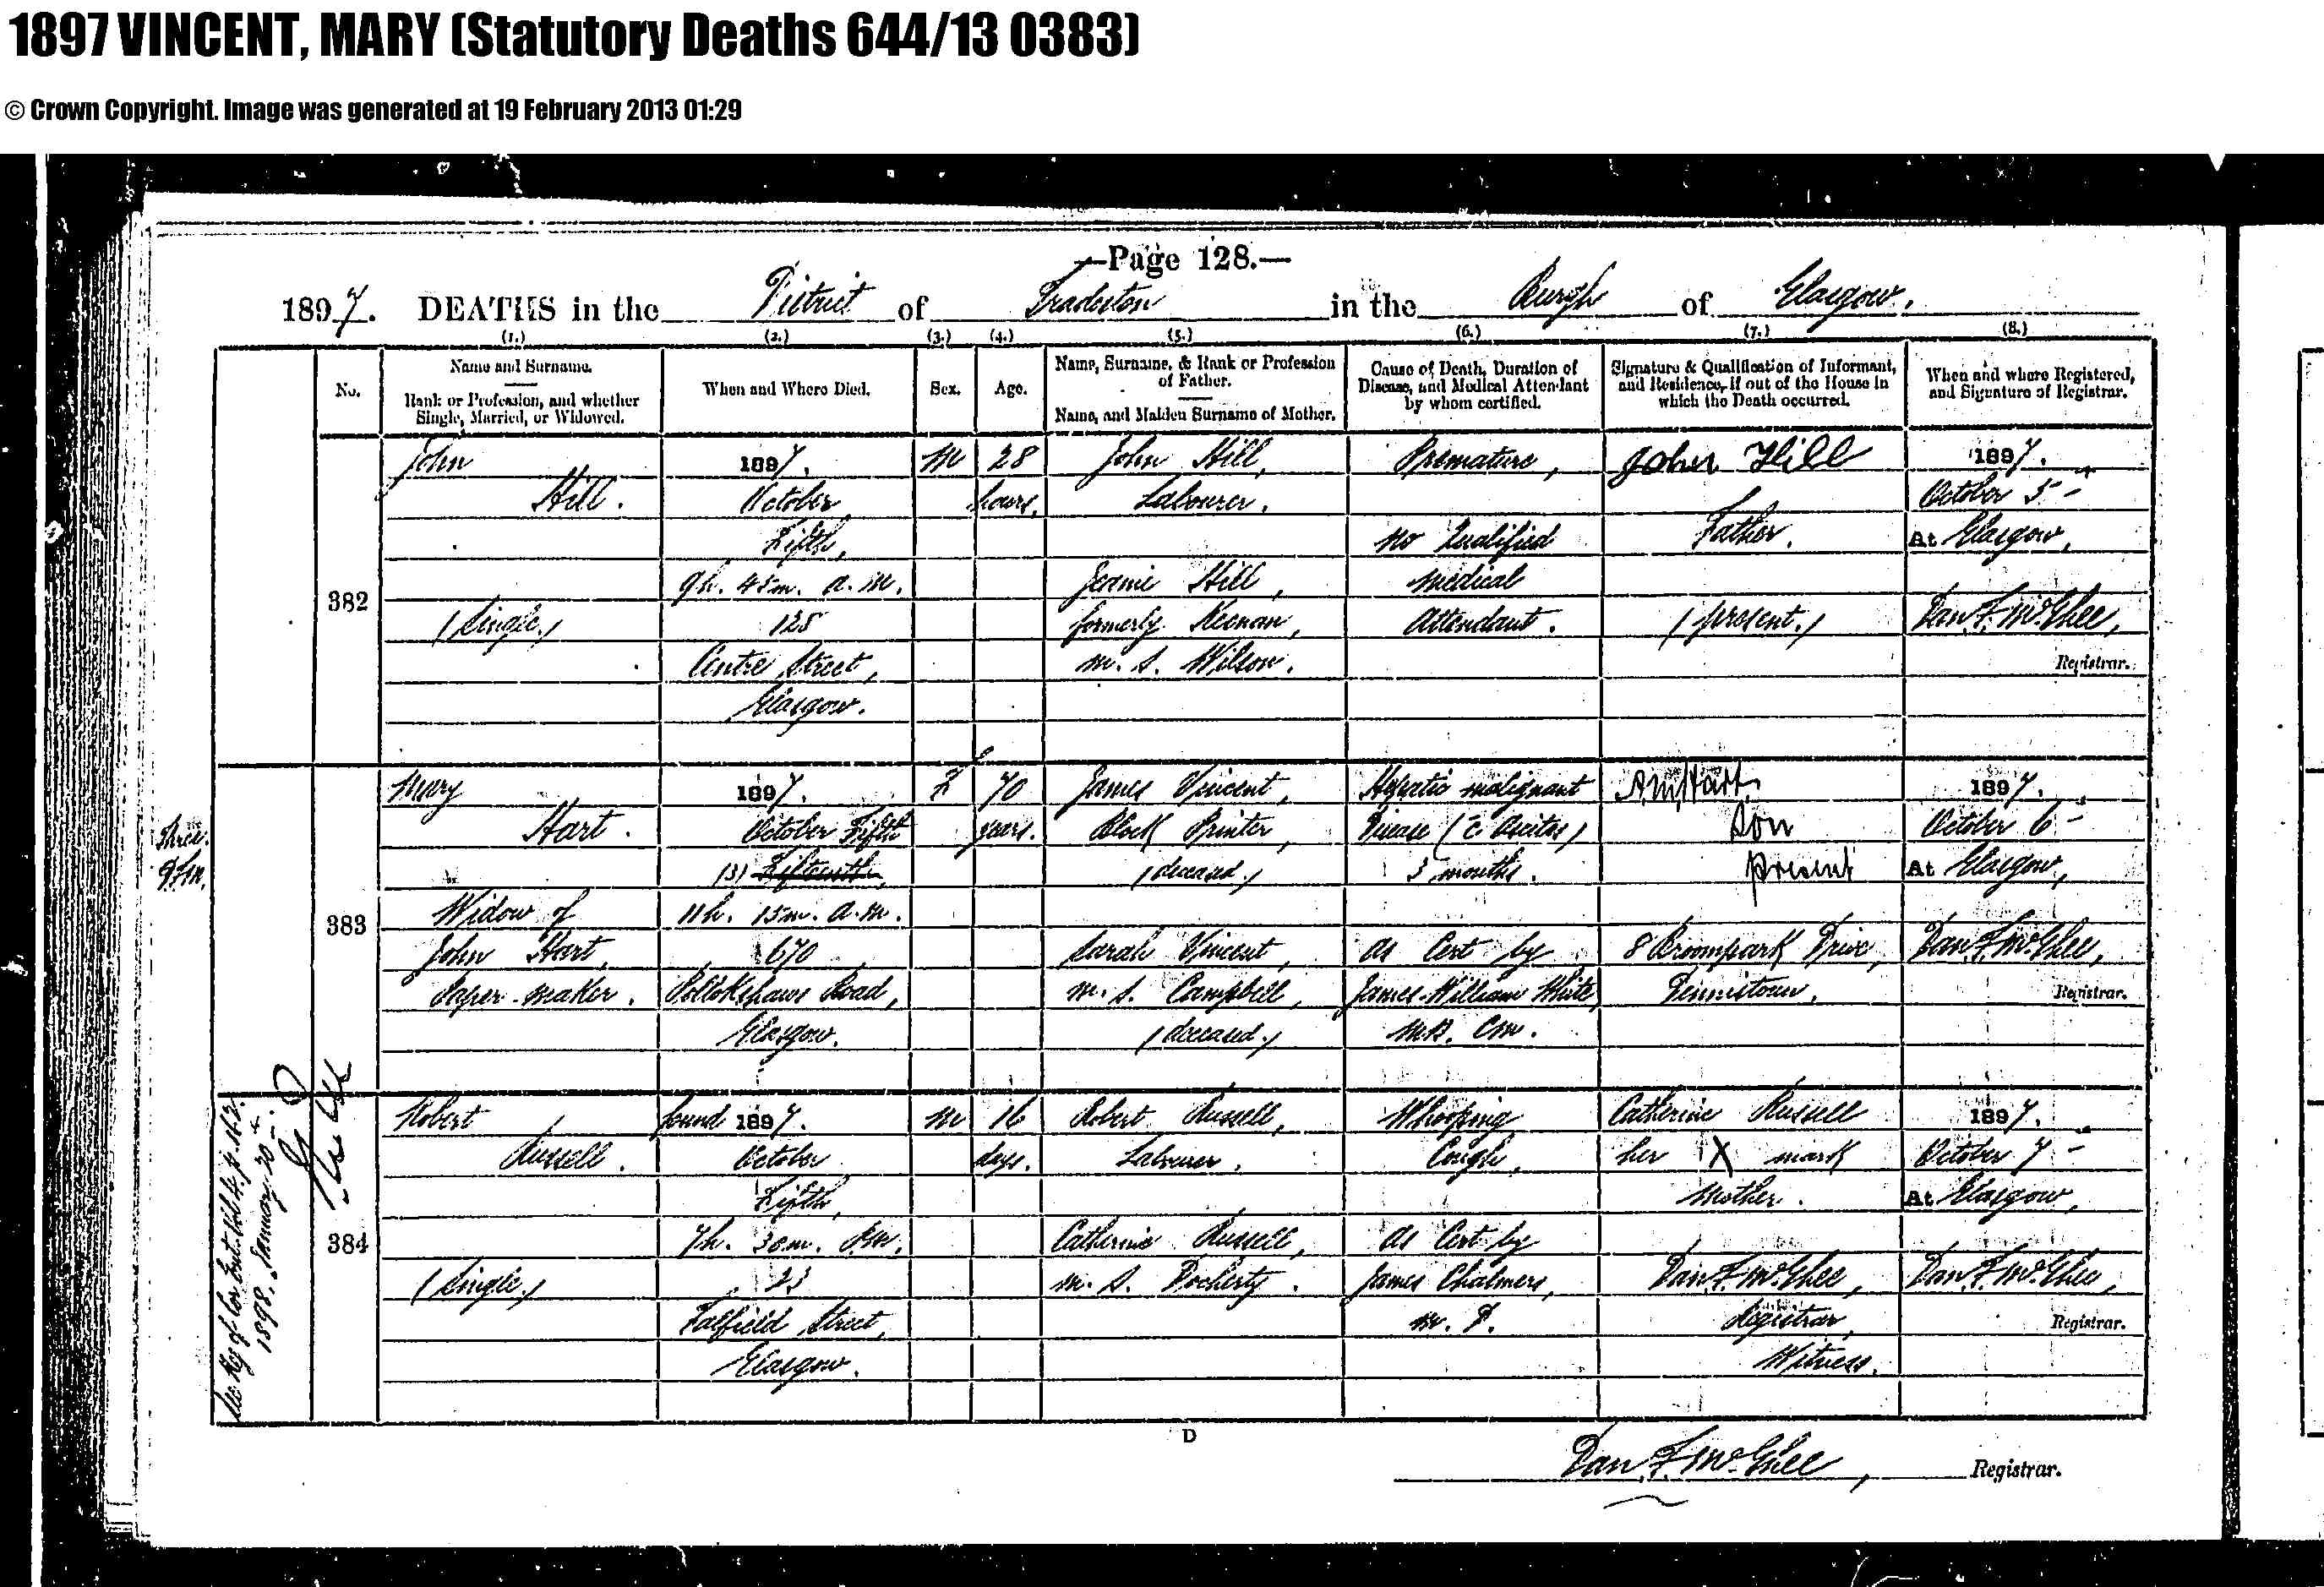 1897 VINCENT, MARY (Statutory Deaths 644/13 0383)
© Crown Copyright. Image was generated at 19 February 2013 01:29
—Page 128.—
1897. DEATHS in the District of Tradeston in the Burgh of Glasgow.
(1.) (2.) (3.) (4.) (5.) (6.) (7.) (8.)
No.
Name and Surname.
Rank or Profession, and whether
Single, Married, or Widowed.
When and Where Died.
Sex.
Age.
Name, Surname, & Rank or Profession
of Father.
Name, and Maiden Surname of Mother.
Cause of Death, Duration of
Disease, and Medical Attendant
by whom certified.
Signature & Qualification of Informant,
and Residence, if out of the House in
which the Death occurred.
When and where Registered,
and Signature of Registrar.
382
John
Hill.
(Single.)
1897.
October
Fifth,
9h. 45m. a.m.
125
Centre Street,
Glasgow.
M
28
hours.
John Hill,
Labourer.
Jeanie Hill,
formerly Keenan,
m. s. Wilson.
Premature,
No Qualified
Medical
Attendant.
John Hill
Father.
(present.)
1897.
October 5
At Glasgow,
Dan F. McGhee,
Registrar.
Three.
D.F.M.
383
Mary
Hart.
Widow of
John Hart,
Paper-maker.
1897.
October Fifth
(3) Fifteenth,
11h. 15m. a.m.
670
Pollokshaws Road,
Glasgow.
F
70
years.
James Vincent,
Block Printer,
(deceased.)
Sarah Vincent,
m. s. Campbell,
(deceased.)
Hepatic malignant
Disease (c̄ Ascites)
3 months.
As Cert by
James William White
M.B. C.M.
A. M. Hart.
Son
present
8 Broompark Drive,
Dennistoun.
1897.
October 6
At Glasgow,
Dan F. McGhee,
Registrar.
See Reg of Cor. Ent. Vol 4. p. 162.
1898. January 20th.
384
Robert
Russell.
(Single.)
found 1897.
October
Fifth,
7h. 30m. A.M.
23
Falfield Street,
Glasgow.
M
16
days.
Robert Russell,
Labourer.
Catherine Russell,
m. s. Docherty.
Whooping
Cough,
As Cert by
James Chalmers,
M. D.
Catherine Russell
her X mark
Mother.
Dan F. McGhee,
Registrar,
Witness.
1897.
October 7
At Glasgow,
Dan F. McGhee,
Registrar.
D
Dan F. McGhee, Registrar.